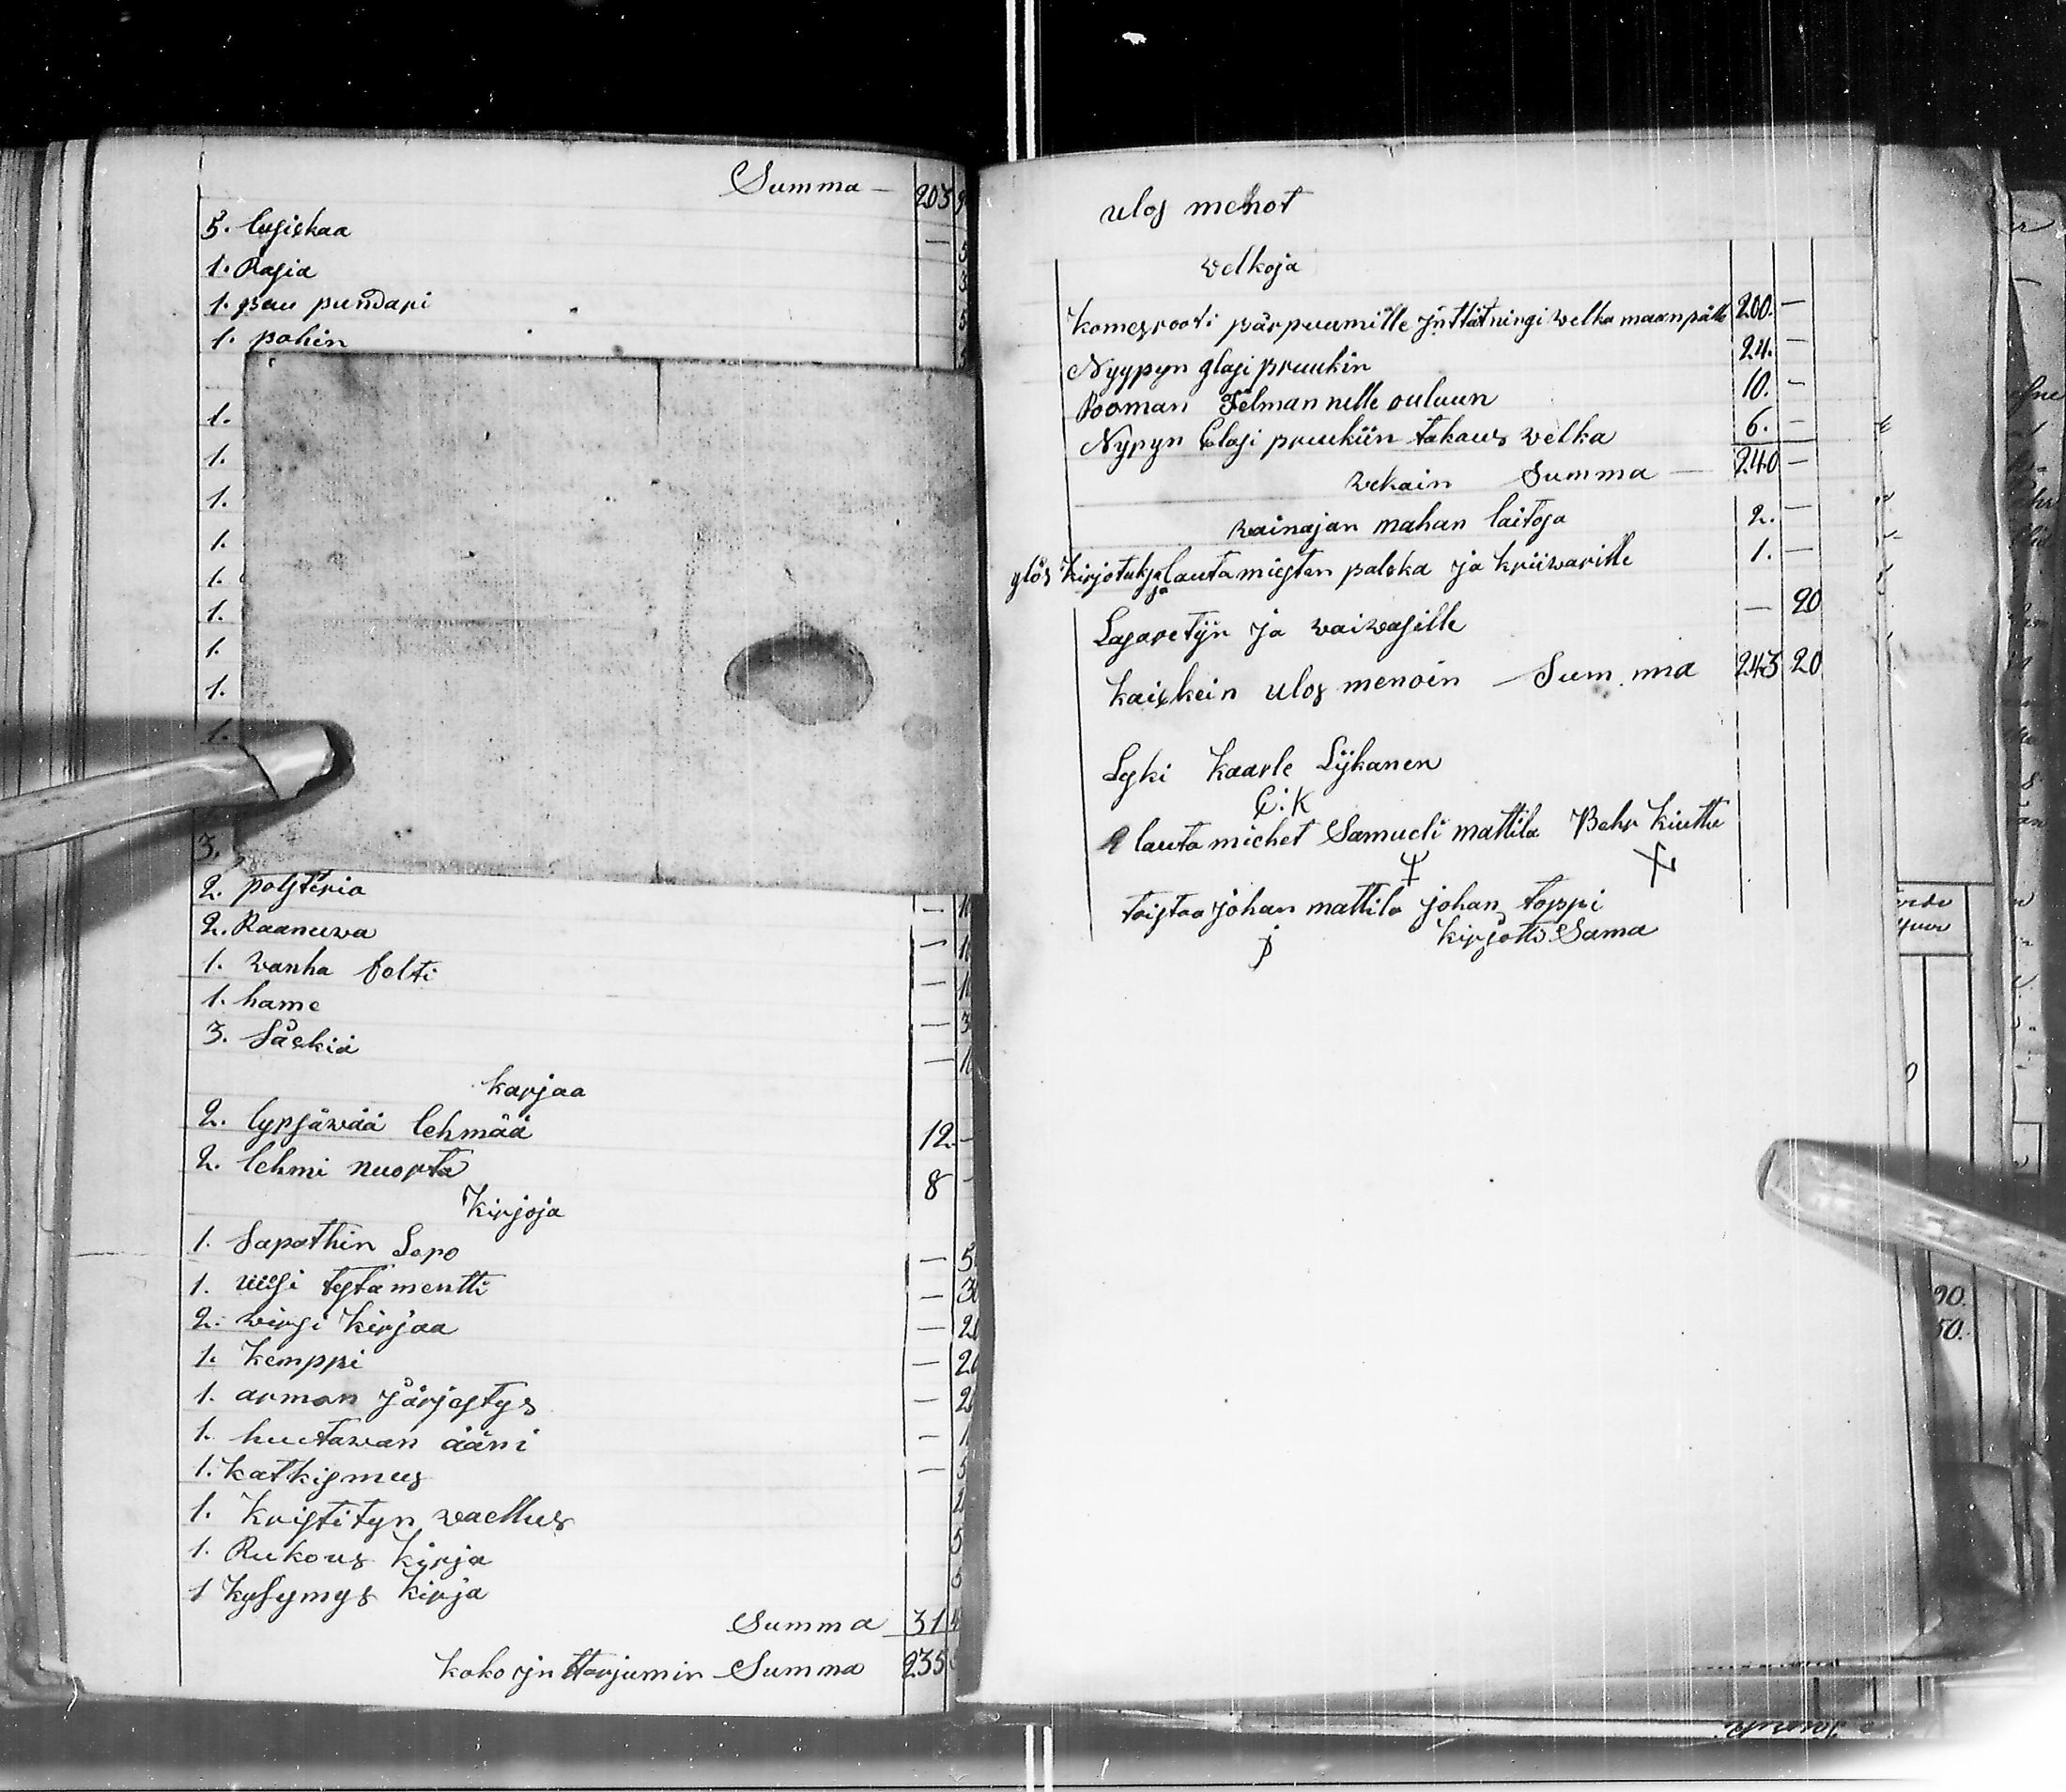 Summa — 203
5. lusiskaa —
1. Rasia
1. puu pundari
1. pahin
1.
1.
1.
1.
1.
1.
1.
1.
1.
3.
2. polsteria —
2. Raanuwa —
1. wanha folti —
1. hame —
3. Säckiä —
karjaa
2. lypsäwää lehmää 12 —
2. lehmi nuorta 8 -
Kirjoja
1. Sapathin Lepo — 5
1. uusi testamentti — 30
2. wirsi Kirjaa — 20
1. Kemppi — 20
1. arman Järjestys — 2
1. huutawan ääni — 1
1. Katkismus — 5
1. Kristityn waellus
1. Rukous Kirja 5
1 Kysymys Kirja
Summa 31
koko Summa 235
ulos menot
welkoja
welka maan pälle 200. —
Nyypyn glasi pruukin 24. —
Pooman Felman nelle ouluun 10. —
Nypyn Glasi pruukiin takaus welka 6. —
wekain Summa — 240 —
wainajan mahan laitoja 2. —
ylös Kirjotuksia lautamiesten palska ja kriiwarille 1. —
Lasaretijn ja waiwasille — 20
kaickein ulos menoin — Summa 243 20
Lyki Kaarle Lijkanen
C. K
2 lauta miehet Samueli mattila Kiuttu
toistaa johan mattila johan toppi
Kirjotti Sama
90.
50.